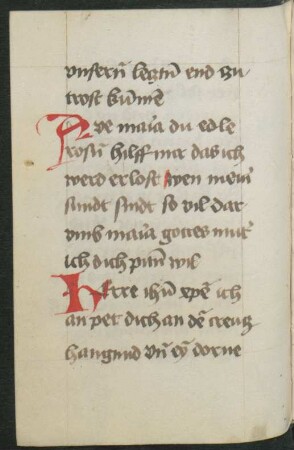 vnsern̄ leczten end zu
trost kumē
Aue maria du edle
rosen hilff mir das ich
werd erlost wen mein
sundt sindt so vil dar
vmb maria gottes muter
ich dich piten wil
Herre ihū xpē ich
an pet dich an dē creucz
hangund vn̄ eȳ dorne